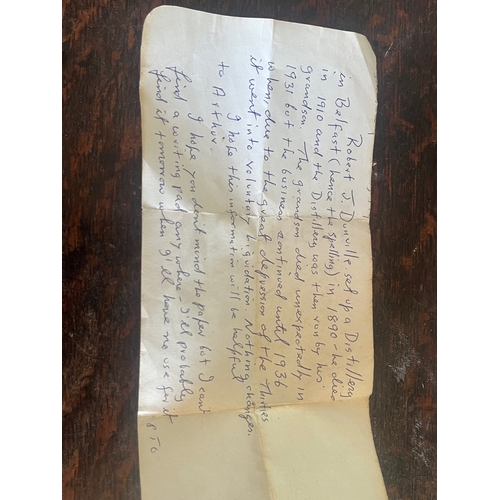 Robert J. Dunville set up a Distillery
in Belfast (hence the spelling) in 1890 he died
in 1910 and the Distillery was then run by his
grandson. The grandson died unexpectedly in
1931 but the business continued until 1936
when, due to the great depression of the Thirties
it went into voluntary liquidation. Nothing changes.
I hope this information will be helpful
to Arthur.
I hope you don't mind the paper but I can't
find a writing pad any where I'll probably
find it tomorrow when I'll have no use for it